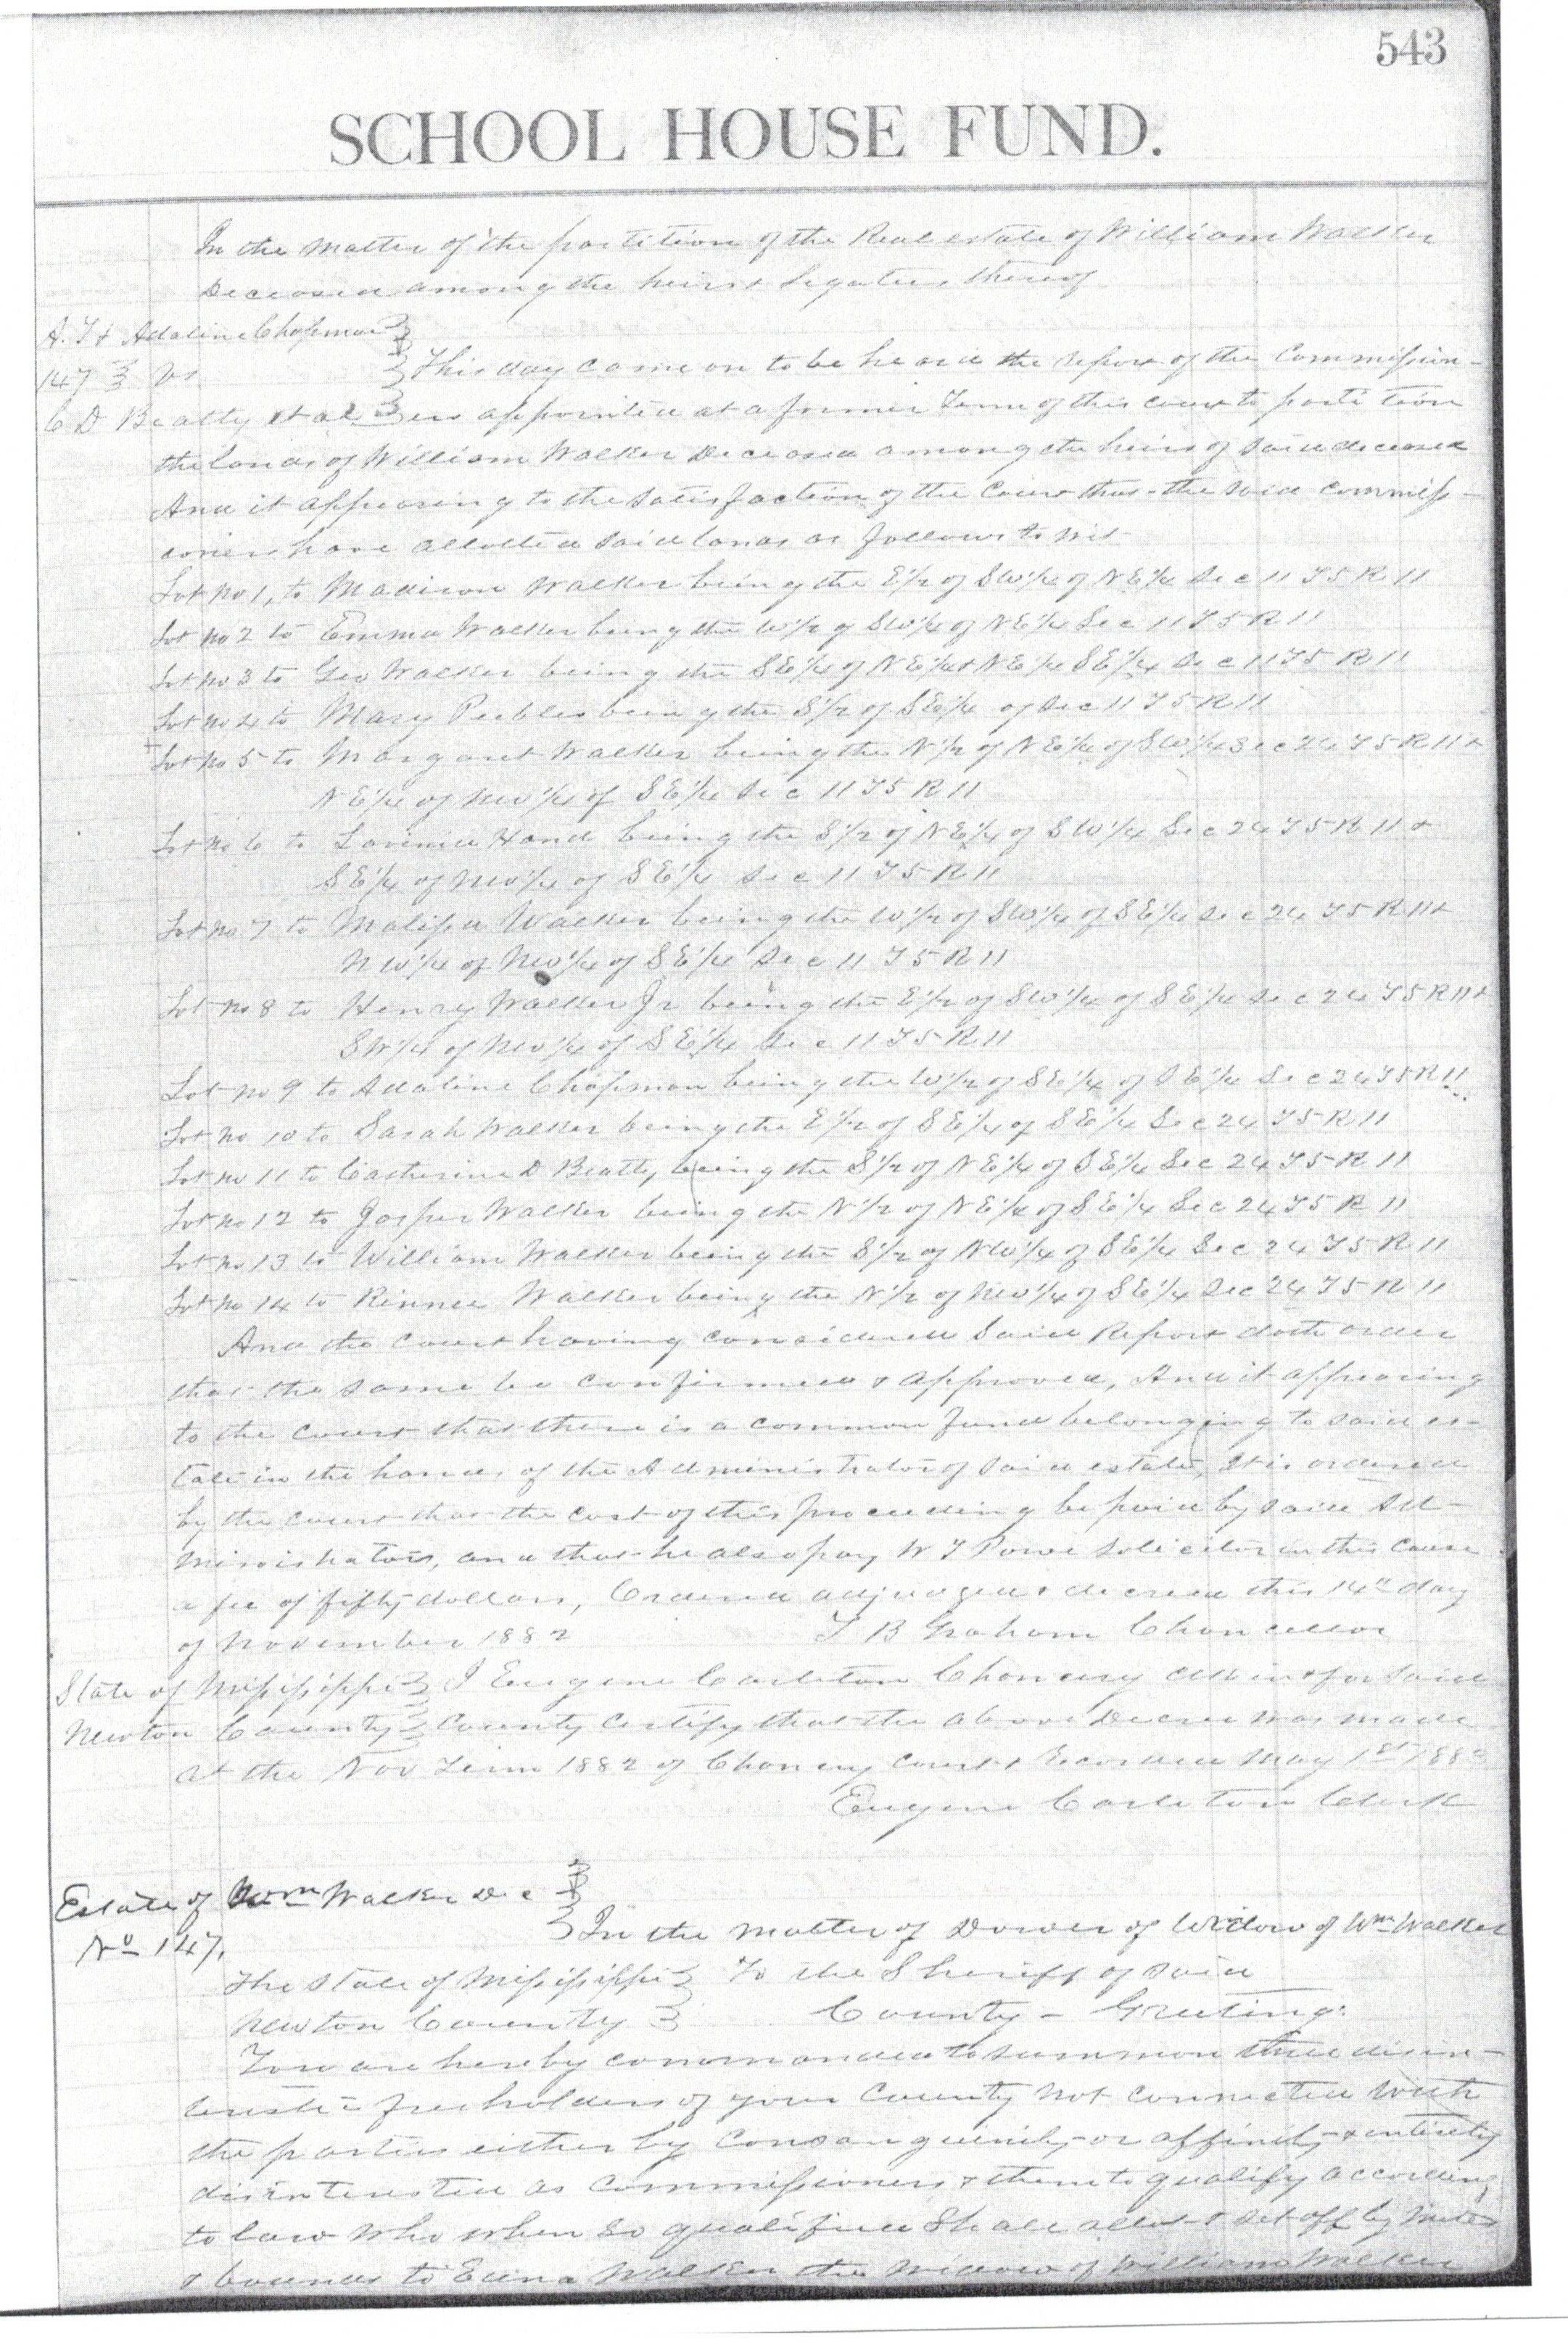 543
SCHOOL HOUSE FUND.
In the matter of the partition of the Real estate of William Walker
Deceased among the heirs & legatees thereof
A. T & Adaline Chapman
147 vs This day came on to be heard the report of the Commission-
C D Beatty et al ers appointed at a former Term of this court to partition
the lands of William Walker Deceased among the heirs of said deceased
And it appearing to the satisfaction of the Court that the said commiss-
ioners have allotted said lands as follows to wit
Lot No 1, to Madison Walker being the E 1/2 of SW 1/4 of NE 1/4 Sec 11 T5 R 11
Lot No 2 to Emma Walker being the W 1/2 of SW 1/4 of NE 1/4 Sec 11 T5 R 11
Lot No 3 to Geo Walker being the SE 1/4 of NE 1/4 & NE 1/4 SE 1/4 Sec 11 T5 R 11
Lot No 4 to Mary Peebles being the S 1/2 of SE 1/4 of Sec 11 T5 R 11
+ Lot No 5 to Margaret Walker being the N 1/2 of NE 1/4 of SW 1/4 Sec 24 T5 R 11 &
NE 1/4 of NW 1/4 of SE 1/4 Sec 11 T5 R 11
Lot No 6 to Hand being the S 1/2 of NE 1/4 of SW 1/4 Sec 24 T5 R 11 &
SE 1/4 of NW 1/4 of SE 1/4 Sec 11 T5 R 11
Lot No 7 to Malissa Walker being the W 1/2 of SW 1/4 of SE 1/4 Sec 24 T5 R 11 &
NW 1/4 of NW 1/4 of SE 1/4 Sec 11 T5 R 11
Lot No 8 to Henry Walker Jr being the E 1/2 of SW 1/4 of SE 1/4 Sec 24 T5 R 11 &
SW 1/4 of NW 1/4 of SE 1/4 Sec 11 T5 R 11
Lot No 9 to Adaline Chapman being the W 1/2 of SE 1/4 of SE 1/4 Sec 24 T5 R 11
Lot No 10 to Sarah Walker being the E 1/2 of SE 1/4 of SE 1/4 Sec 24 T5 R 11
Lot No 11 to Catherine D Beatty, being the S 1/2 of NE 1/4 of SE 1/4 Sec 24 T5 R 11
Lot No 12 to Jasper Walker being the N 1/2 of NE 1/4 of SE 1/4 Sec 24 T5 R 11
Lot No 13 to William Walker being the S 1/2 of NW 1/4 of SE 1/4 Sec 24 T5 R 11
Lot No 14 to Walker being the N 1/2 of NW 1/4 of SE 1/4 Sec 24 T5 R 11
And the court having considered said Report doth order
that the same be confirmed & approved, And it appearing
to the court that there is a common fund belonging to said es-
tate in the hands of the Administrator of said estate, It is ordered
by the court that the cost of this proceeding be paid by said Ad-
ministrator, and that he also pay W T Powe solicitor in this cause
a fee of fifty dollars, Ordered adjudged & decreed this 14th day
of November 1882 T B Graham Chancellor
State of Mississippi I Eugene Carleton Chancery Clk in & for said
Newton County County certify that the above Decree was made
at the Nov Term 1882 of Chancery court & Recorded May 1st 1883
Eugene Carleton Clerk
Estate of Wm Walker Dec
No 147. In the matter of Dower of Widow of Wm Walker
The State of Mississippi To the Sheriff of said
Newton County County - Greeting:
You are hereby commanded to summon three disin-
terested freeholders of your County not connected with
the parties either by consanguinity or affinity & entirely
disinterested as Commissioners & them to qualify according
to law who when so qualified shall allot & set off by metes
& bounds to Walker the widow of William Walker